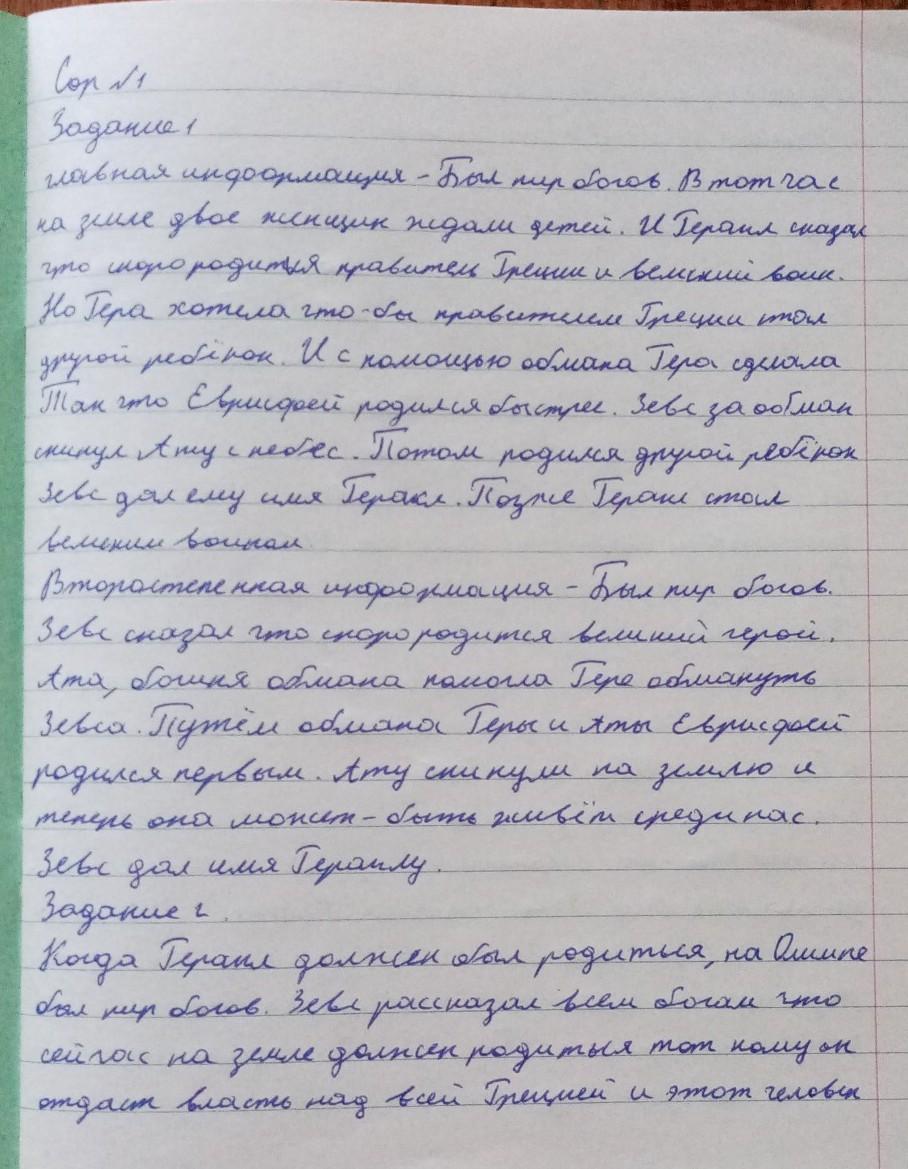 Сор №1
Задание 1
главная информация - Был пир богов. В тот час
на земле двое женщин ждали детей. И Геракл сказал
что скоро родиться правитель Греции и великий воин.
Но Гера хотела что-бы правителем Греции стал
другой ребёнок. И с помощью обмана Гера сделала
Так что Еврисфей родился быстрее. Зевс за обман
скинул Ату с небес. Потом родился другой ребёнок
Зевс дал ему имя Геракл. Позже Геракл стал
великим воином
Второстепенная информация - Был пир богов.
Зевс сказал что скоро родится великий герой.
Ата, богиня обмана помогла Гере обмануть
Зевса. Путём обмана Геры и Аты Еврисфей
родился первым. Ату скинули на землю и
теперь она может-быть живёт среди нас.
Зевс дал имя Гераклу.
Задание 2.
Когда Геракл должен был родиться, на Олимпе
был пир богов. Зевс рассказал всем богам что
сейчас на земле должен родиться тот кому он
отдаст власть над всей Грецией и этот человек